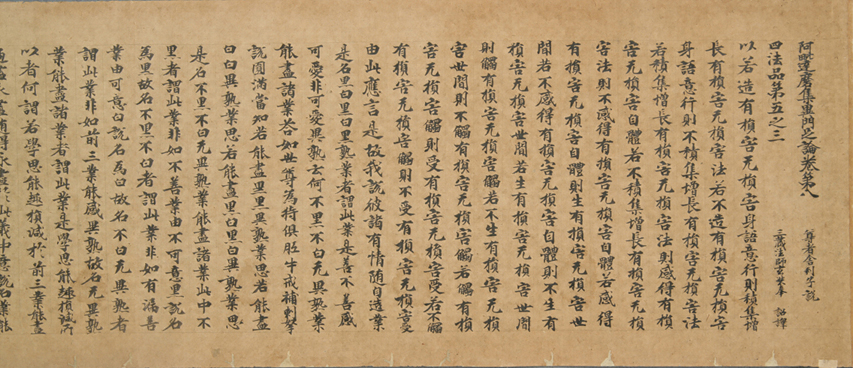 阿毗達磨集異門足論卷第八
尊者舍利子說
四法品第五之三
三藏法師玄奘奉 詔譯
以若造有損害无損害身語意行則積集增
長有損害无損害法若不造有損害无損害
身語意行則不積集增長有損害无損害法
若積集增長有損害无損害法則感得有損
害无損害自體若不積集增長有損害无損
害法則不感得有損害无損害自體若感得
有損害无損害自體則生有損害无損害世
間若不感得有損害无損害自體則不生有
損害无損害世間若生有損害无損害世間
則觸有損害无損害觸若不生有損害无損
害世間則不觸有損害无損害觸若觸有損
害无損害觸則受有損害无損害受若不觸
有損害无損害觸則不受有損害无損害受
由此應言是故我說彼諸有情隨自造業
是名黑白黑白異熟業者謂此業是善不善感
可愛非可愛異熟云何不黑不白无異熟業
能盡諸業荅如世尊為持俱胝牛戒補剌拏
說圓滿當知若能盡黑黑異熟業思若能盡
白白異熟業思若能盡黑白黑白異熟業思
是名不黑不白无異熟業能盡諸業此中不
黑者謂此業非如不善業由不可意黑說名
為黑故名不黑不白者謂此業非如有漏善
業由可意白說名為白故名不白无異熟者
謂此業非如前三業能感異熟故名无異熟
業能盡諸業者謂此業是學思能趣損減所
以者何謂若學思能趣損減於前三業能盡
遍盡永盡隨得永盡於此義中意說名業能